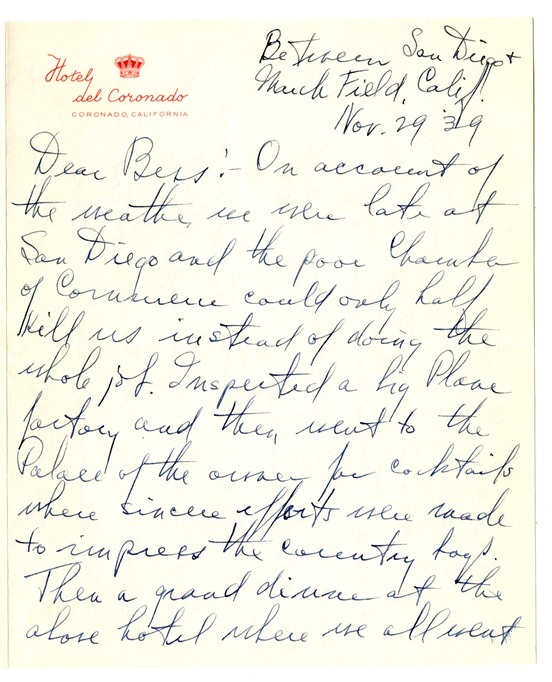 Hotel
del Coronado
CORONADO, CALIFORNIA
Between San Diego +
March Field, Calif.
Nov. 29 '39
Dear Bess:- On account of
the weather we were late at
San Diego and the poor Chamber
of Commerce could only half
kill us instead of doing the
whole job. Inspected a big Plane
factory and then went to the
Palace of the owner for cocktails
where sincere efforts were made
to impress the country boys.
Then a grand dinner at the
above hotel where we all went